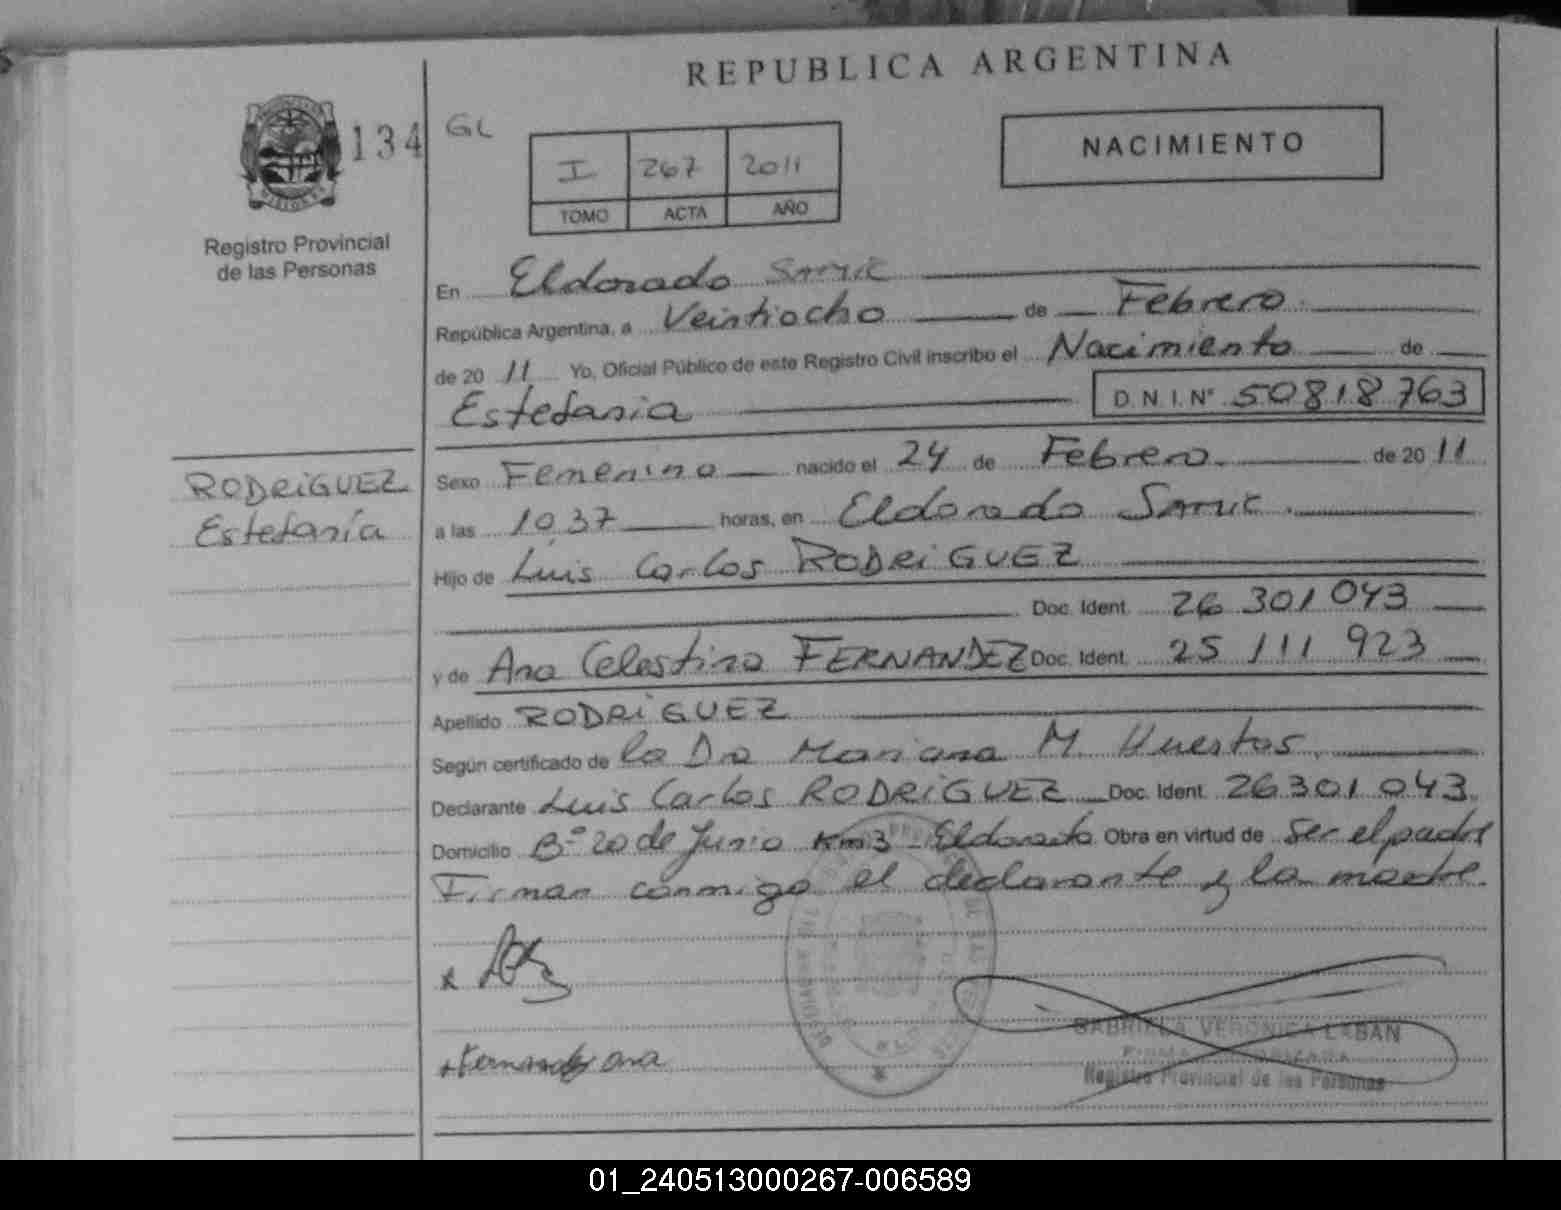 REPUBLICA ARGENTINA
134 GL
NACIMIENTO
I 267 2011
TOMO ACTA AÑO
MISIONES
Registro Provincial
de las Personas
En Eldorado Samic
República Argentina, a Veintiocho de Febrero
de 20 11 Yo, Oficial Público de este Registro Civil inscribo el Nacimiento de
Estefania D.N.I. Nº 50818763
RODRiGUEZ
Estefanía
Sexo Femenino nacido el 24 de Febrero de 20 11
a las 10.37 horas, en Eldorado Samic.
Hijo de Luis Carlos RODRiGUEZ
Doc. Ident. 26 301 043
y de Ana Celestina FERNANDEZ Doc. Ident. 25 111 923
Apellido RODRiGUEZ
Según certificado de la Dra Mariana M. Huertas
Declarante Luis Carlos RODRiGUEZ Doc. Ident. 26.301.043.
Domicilio Bº 20 de Junio Km3 - Eldorado Obra en virtud de Ser el padre
Firman conmigo el declarante y la madre.
x
x Fernandez ana
GABRIELA VERONICA LABAN
FIRMA AUTORIZADA
Registro Provincial de las Personas
01_240513000267-006589